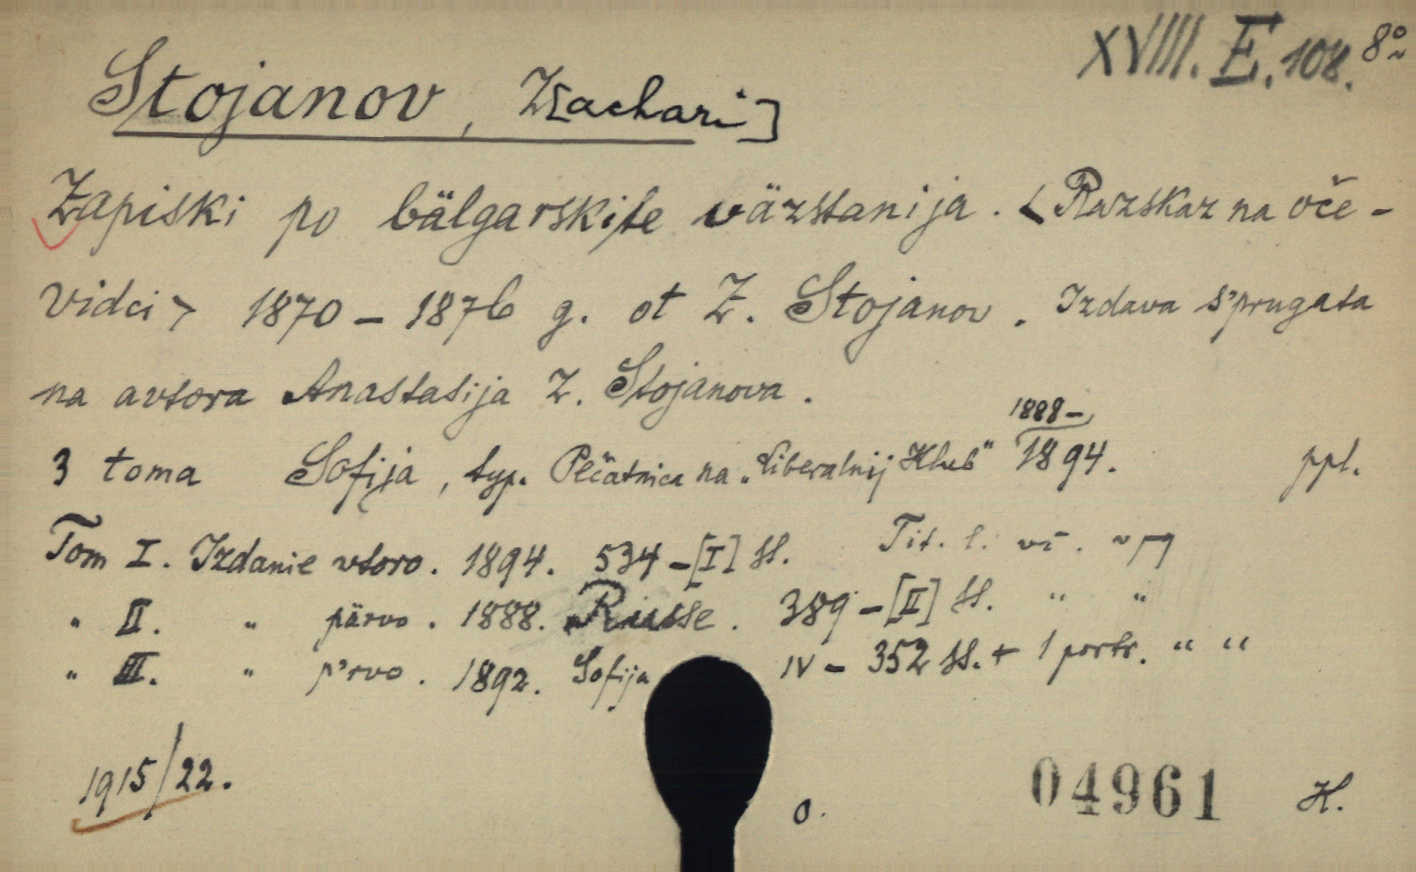 XVIII. E. 108. 8°
Stojanov, Z[achari]
Zapiski po bälgarskite väzstanija. <Razskaz na oče-
vidci> 1870 – 1876 g. ot Z. Stojanov. Izdava s'prugata
na avtora Anastasija Z. Stojanova.
1888 –
3 toma Sofija, typ. Pečatnica na „Liberalnij Klub" 1894. ppl.
Tom I. Izdanie vtoro. 1894. 534 – [I] ss. Tit. l.
" II. " pärvo. 1888. 389 – [II] ss. " "
" III. " p'rvo. 1892. Sofija IV – 352 ss. + 1 portr. " "
1915/22.
o. 04961 H.